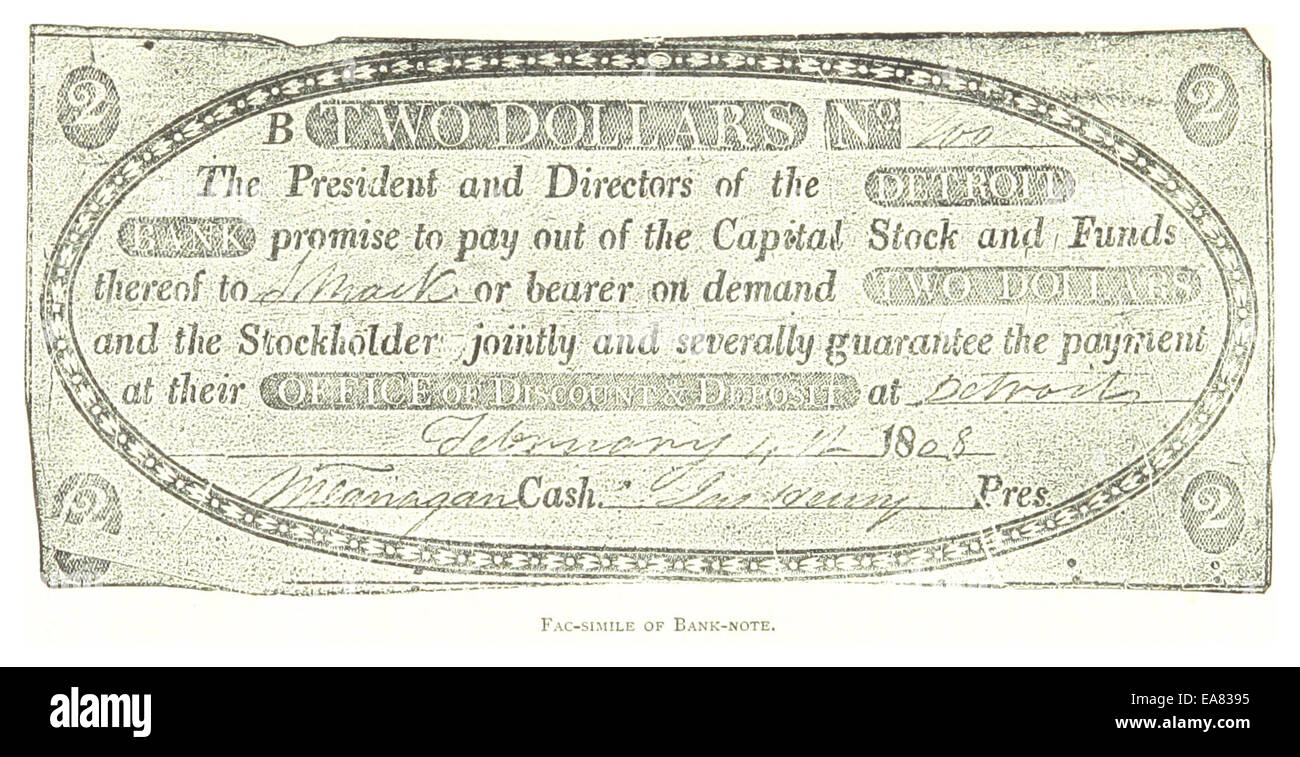 2 2
B TWO DOLLARS No. 100
The President and Directors of the DETROIT
BANK promise to pay out of the Capital Stock and Funds
thereof to J Mack or bearer on demand TWO DOLLARS
and the Stockholder jointly and severally guarantee the payment
at their OFFICE OF DISCOUNT & DEPOSIT at Detroit
February 1808
Flanagan Cash. Henry Pres.
2 2
FAC-SIMILE OF BANK-NOTE.
alamy stock photo
EA8395
www.alamy.com